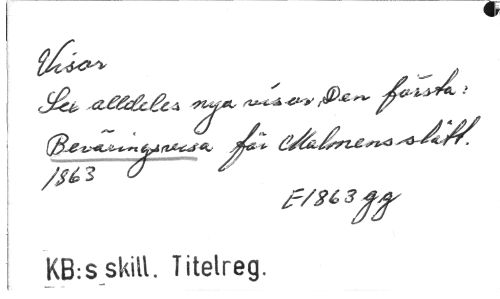 Visor
Sex alldeles nya visor. Den första:
Beväringsvisa för Malmens slätt.
1863
E1863 gg
KB:s skill. Titelreg.